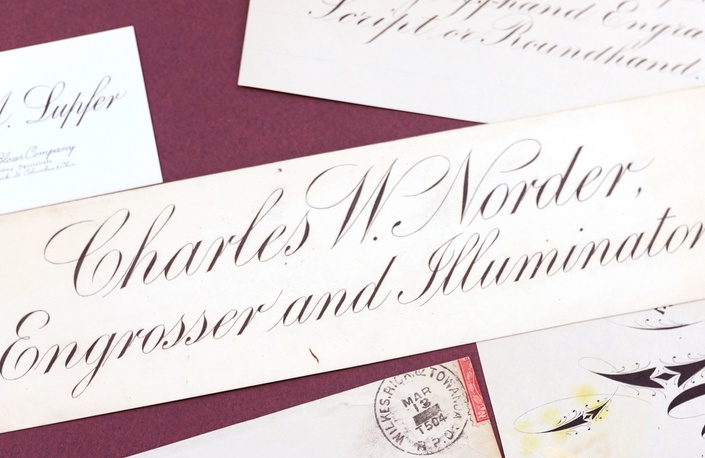 Engra
Script or Roundhand.
Lupfer
Company
Charles W. Norder,
Engrosser and Illuminator
WILKES. & TOWANDA
MAR
13
1504
R.P.O.